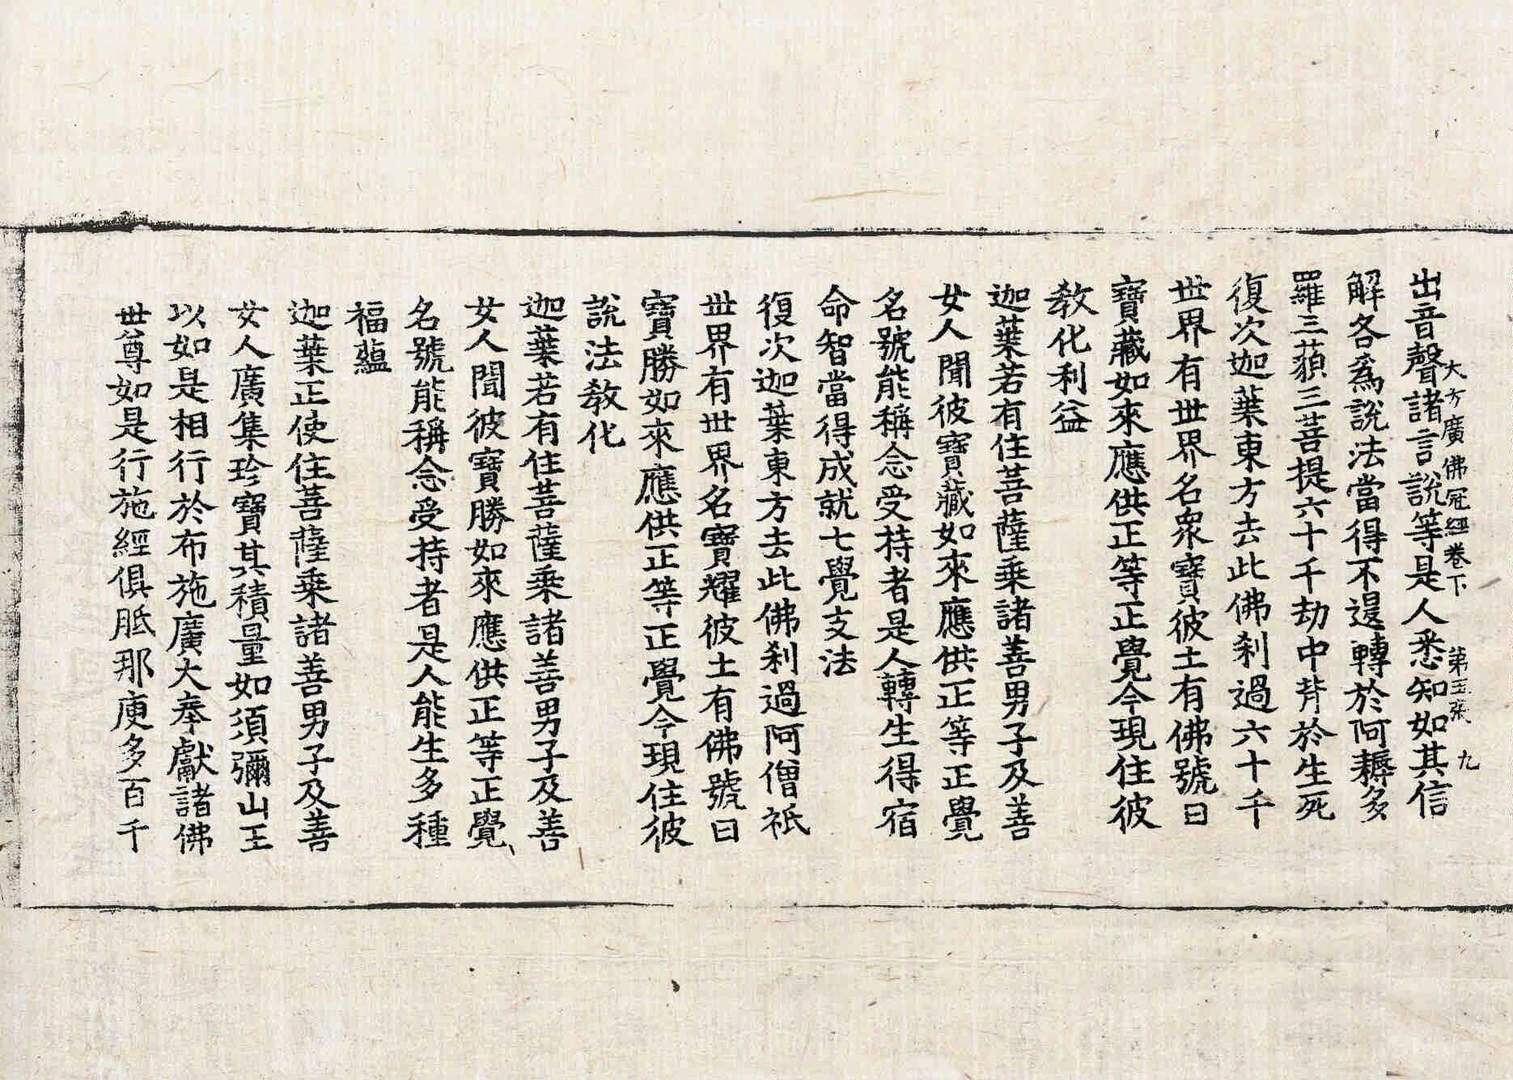 大方廣佛冠經卷下 第五張 九
出音聲諸言說等是人悉知如其信
解各爲說法當得不退轉於阿耨多
羅三藐三菩提六十千劫中背於生死
復次迦葉東方去此佛刹過六十千
世界有世界名衆寶彼土有佛號曰
寶藏如來應供正等正覺今現住彼
教化利益
迦葉若有住菩薩乘諸善男子及善
女人聞彼寶藏如來應供正等正覺
名號能稱念受持者是人轉生得宿
命智當得成就七覺支法
復次迦葉東方去此佛刹過阿僧祇
世界有世界名寶耀彼土有佛號曰
寶勝如來應供正等正覺今現住彼
說法教化
迦葉若有住菩薩乘諸善男子及善
女人聞彼寶勝如來應供正等正覺
名號能稱念受持者是人能生多種
福蘊
迦葉正使住菩薩乘諸善男子及善
女人廣集珍寶其積量如須彌山王
以如是相行於布施廣大奉獻諸佛
世尊如是行施經俱胝那庾多百千